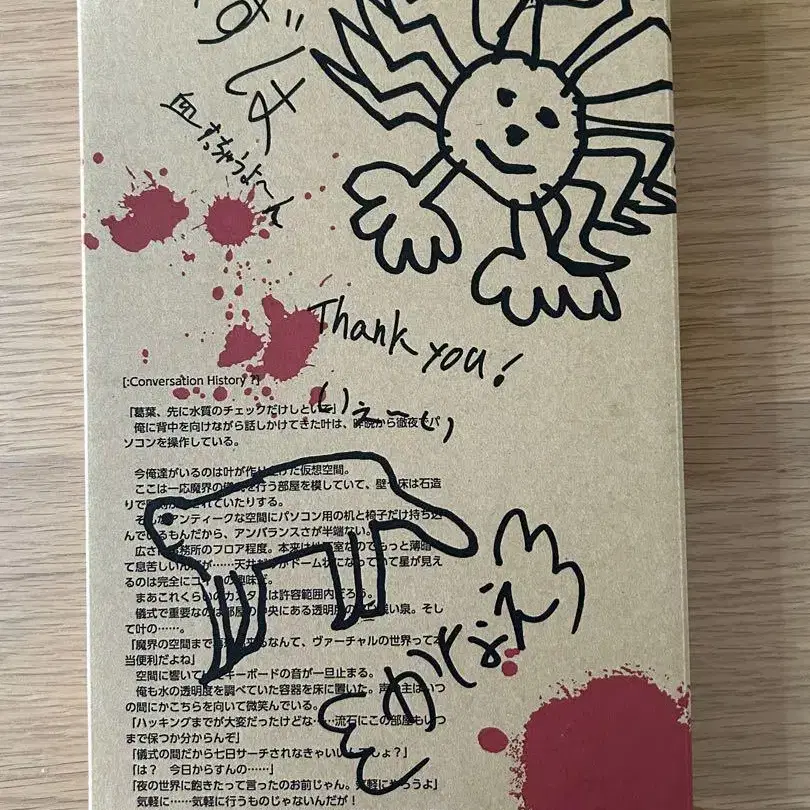 ずは
血すっちゃうよ〜
Thank you!
[:Conversation History ?]
いえ〜い
「葛葉、先に水質のチェックだけしといて」
俺に背中を向けながら話しかけてきた叶は、昨晩から徹夜でパ
ソコンを操作している。
今俺達がいるのは叶が作り上げた仮想空間。
ここは一応魔界の儀式を行う部屋を模していて、壁や床は石造
りで されていたりする。
そんなアンティークな空間にパソコン用の机と椅子だけ持ち込
んでいるもんだから、アンバランスさが半端ない。
広さは 務所のフロア程度。本来は地下室なのでもっと薄暗
て息苦しいんだが……天井だけがドーム状になっていて星が見え
るのは完全にコイツの趣味だ。
まあこれくらいのカスタムは許容範囲内だろう。
儀式で重要なのは部屋の中央にある透明度の い泉。そし
て叶の……。
「魔界の空間まで 来るなんて、ヴァーチャルの世界って本
当便利だよね」
空間に響いて キーボードの音が一旦止まる。
俺も水の透明度を調べていた容器を床に置いた。声の主はいつ
の間にかこちらを向いて微笑んでいる。
「ハッキングまでが大変だったけどな……流石にこの部屋もいつ
まで保つか分からんぞ」
「儀式の間だから七日サーチされなきゃいいんでしょ？」
「は？　今日からすんの……」
「夜の世界に飽きたって言ったのお前じゃん。気軽にやろうよ」
気軽に……気軽に行うものじゃないんだが！
かなえ